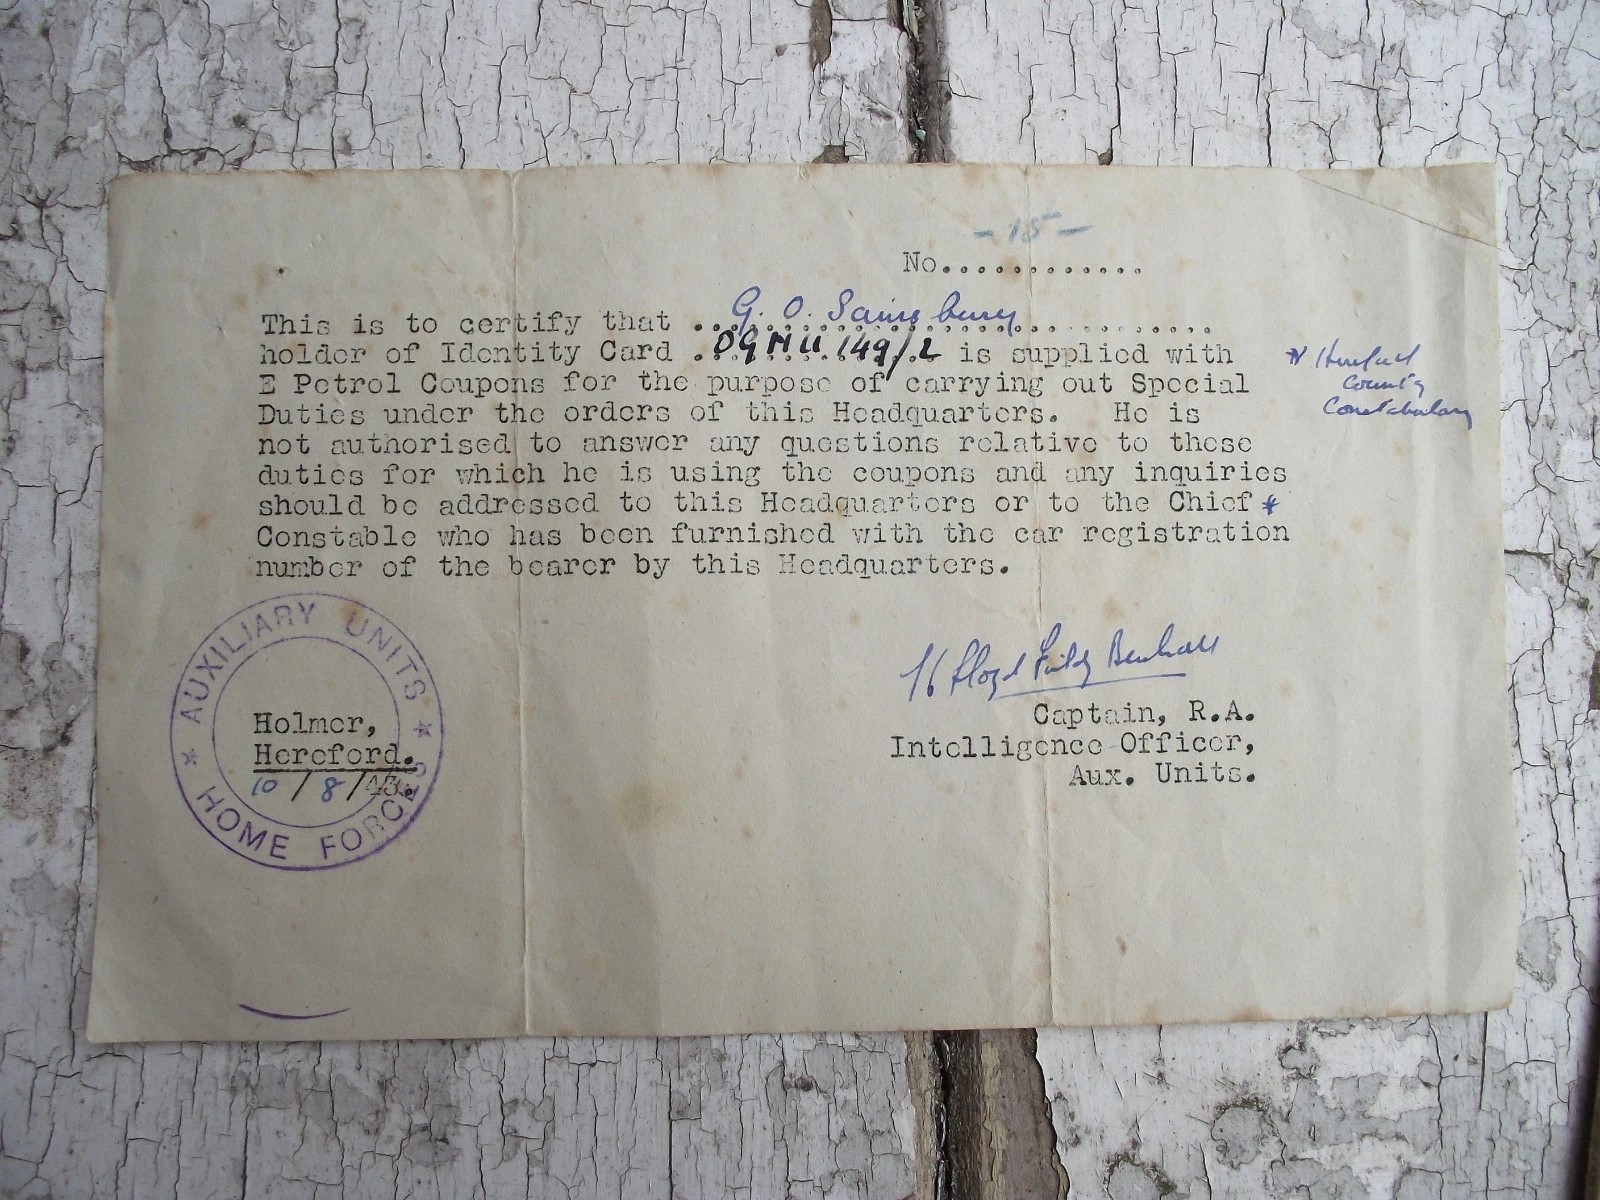 - 15 -
No.............
This is to certify that G. O. Sainsbury
holder of Identity Card 09 MU 149/2 is supplied with
E Petrol Coupons for the purpose of carrying out Special
Duties under the orders of this Headquarters. He is
not authorised to answer any questions relative to these
duties for which he is using the coupons and any inquiries
should be addressed to this Headquarters or to the Chief *
Constable who has been furnished with the car registration
number of the bearer by this Headquarters.
* Hereford
County
Constabulary
Lloyd
Captain, R.A.
Intelligence Officer,
Aux. Units.
AUXILIARY UNITS
* HOME FORCES *
Holmer,
Hereford.
10/8/43.